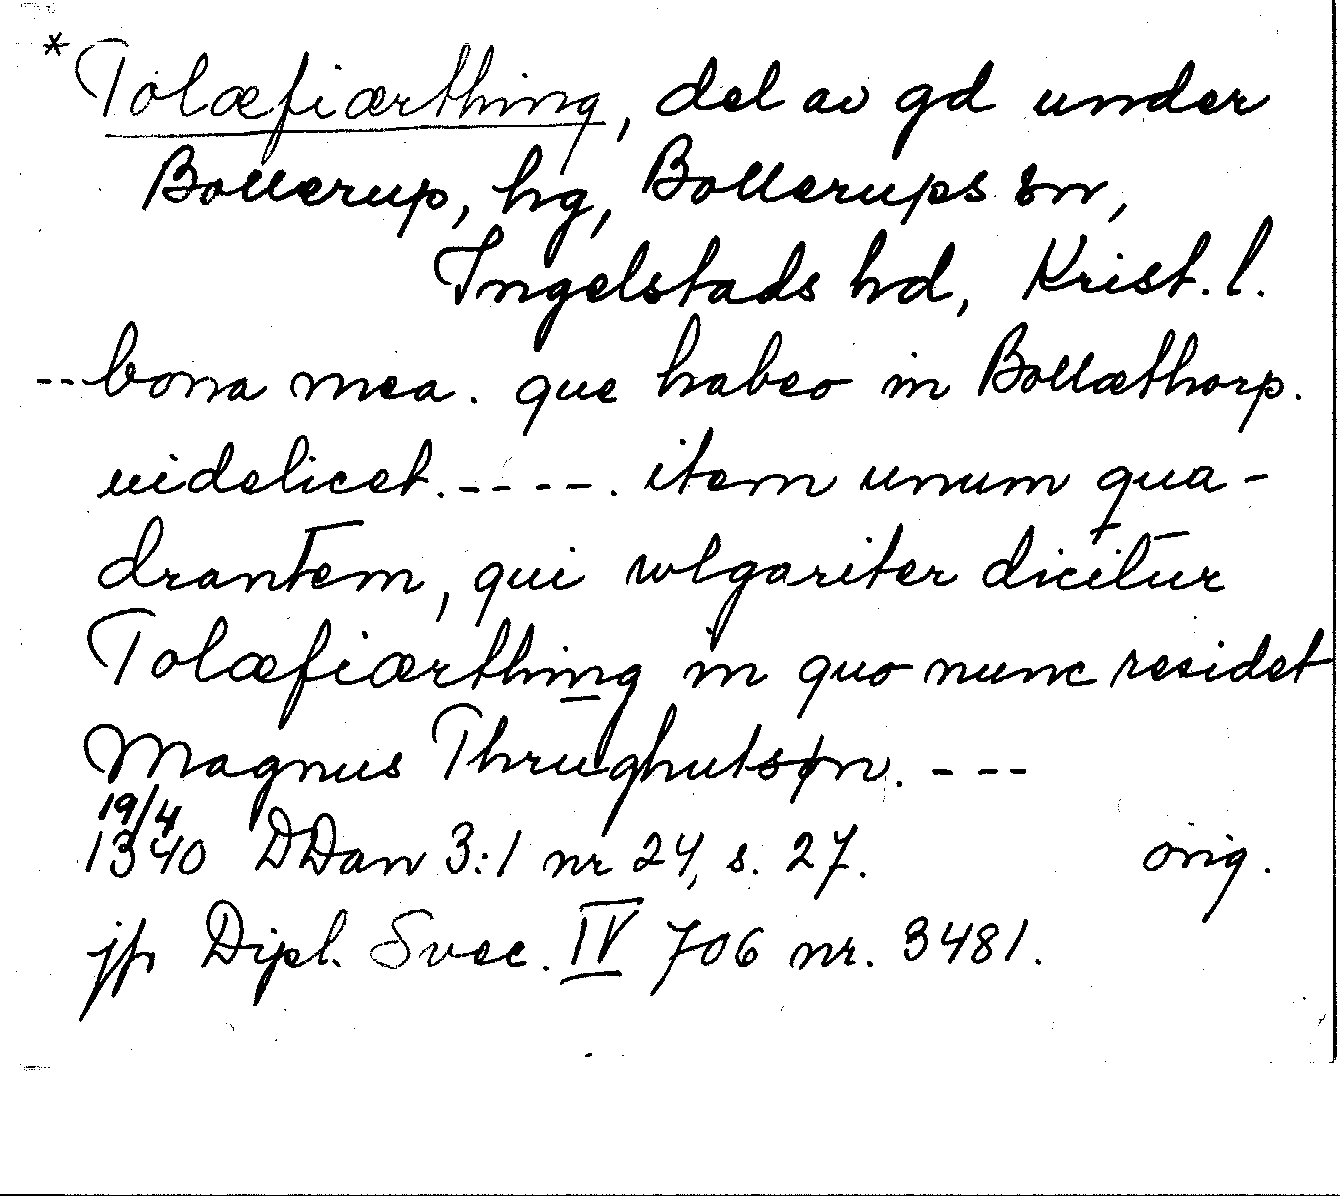 *Tolæfiærthing, del av gd under
Bollerup, hg, Bollerups sn,
Ingelstads hd, Krist. l.
--bona mea. que habeo in Bollæthorp.
uidelicet.----. item unum qua-
drantem, qui wlgariter dicitur
Tolæfiærthing in quo nunc residet
Magnus Thrughutsøn. ---
19/4
1340 DDan 3:1 nr 24, s. 27. orig.
jfr Dipl. Svec. IV 706 nr. 3481.